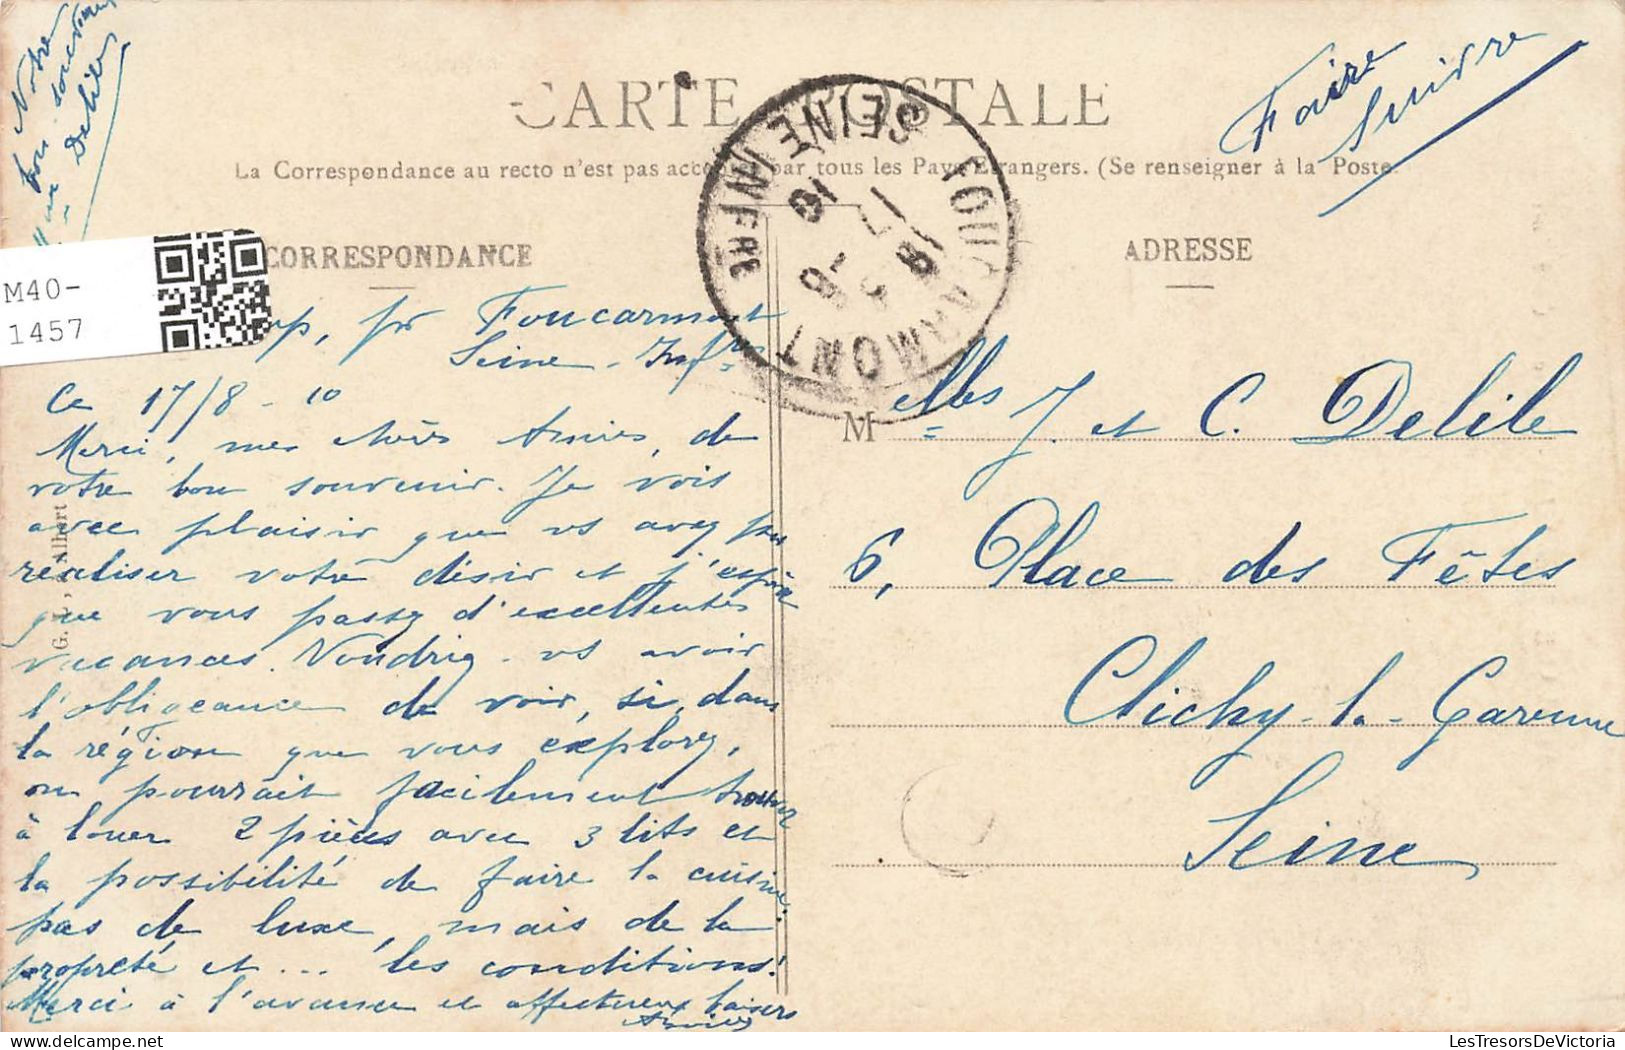 Notre
bon souvenir
Delile
Faire
Suivre
CARTE POSTALE
La Correspondance au recto n'est pas acceptée par tous les Pays Etrangers. (Se renseigner à la Poste.
FOUCARMONT
SEINE INFRE
17 - 8
10
CORRESPONDANCE
ADRESSE
M40-
1457
pr Foucarmont
Seine-Infre
Ce 17/8 - 10
Merci, mes chères Amies, de
votre bon souvenir. Je vois
avec plaisir que vs avez pu
réaliser votre désir et j'espère
que vous passez d'excellentes
vacances. Voudriez-vs avoir
l'obligeance de voir, si, dans
la région que vous explorez,
on pourrait facilement trouver
à louer 2 pièces avec 3 lits et
la possibilité de faire la cuisine,
pas de luxe, mais de la
propreté et ... les conditions!
Merci à l'avance et affectueux baisers
Melles J. et C. Delile
6, Place des Fêtes
Clichy-la-Garenne
Seine
Albert
LesTresorsDeVictoria